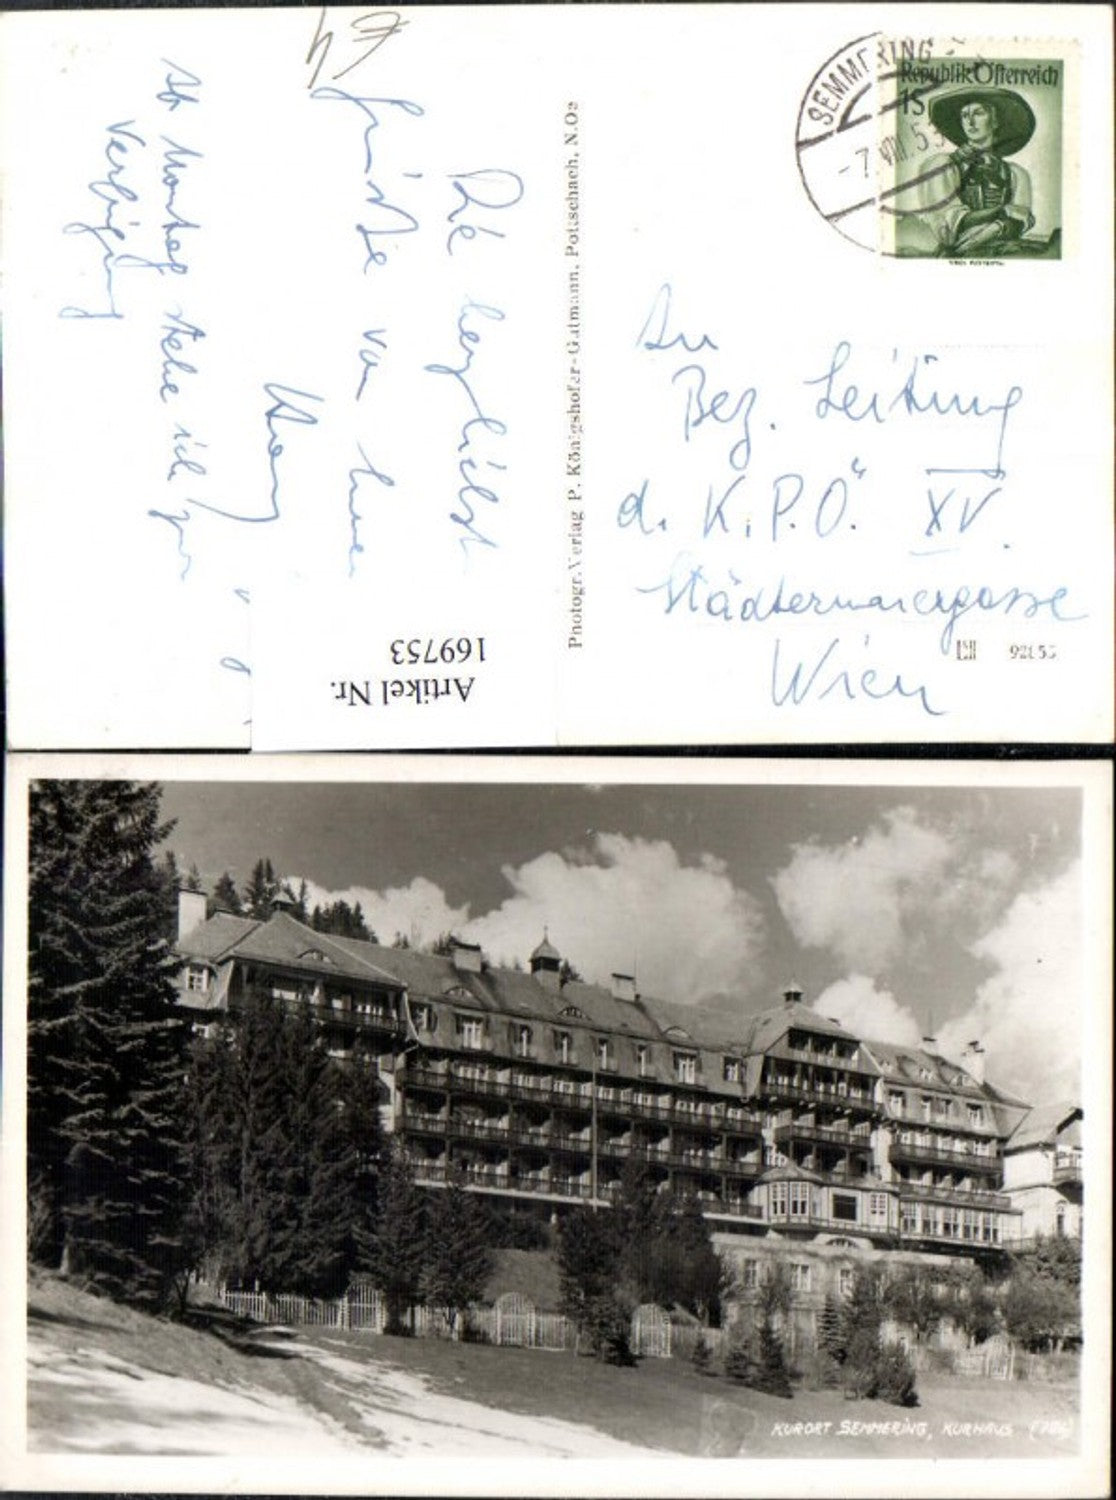 Die herzlichst
Grüße von
Ab Montag stehe ich zur
Verfügung
Photogr. Verlag P. Königshofer-Gutmann, Pottschach, N.Oe
SEMMERING
-7.VIII.53
Republik Österreich
1S
An
Bez. Leitung
d. K.P.Ö. XV.
Städtermayergasse
Wien
Artikel Nr.
169753
KURORT SEMMERING, KURHAUS